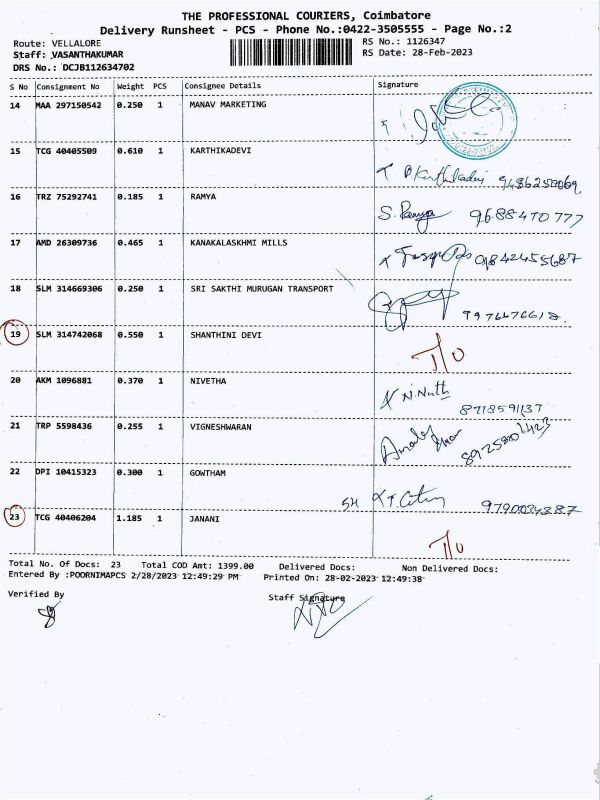 THE PROFESSIONAL COURIERS, Coimbatore
Delivery Runsheet - PCS - Phone No.:0422-3505555 - Page No.:2
Route: VELLALORE
Staff: VASANTHAKUMAR
DRS No.: DCJB112634702
RS No.: 1126347
RS Date: 28-Feb-2023
S No Consignment No Weight PCS Consignee Details Signature
14 MAA 297150542 0.250 1 MANAV MARKETING
15 TCG 40405509 0.610 1 KARTHIKADEVI 9486250069
16 TRZ 75292741 0.185 1 RAMYA S. Ramya 9688470777
17 AMD 26309736 0.465 1 KANAKALASKHMI MILLS 9842455687
18 SLM 314669306 0.250 1 SRI SAKTHI MURUGAN TRANSPORT 9976676612
19 SLM 314742068 0.550 1 SHANTHINI DEVI T/O
20 AKM 1096881 0.370 1 NIVETHA 8718591137
21 TRP 5598436 0.255 1 VIGNESHWARAN
22 DPI 10415323 0.300 1 GOWTHAM
23 TCG 40406204 1.185 1 JANANI T/O
Total No. Of Docs: 23 Total COD Amt: 1399.00 Delivered Docs: Non Delivered Docs:
Entered By :POORNIMAPCS 2/28/2023 12:49:29 PM Printed On: 28-02-2023 12:49:38
Verified By
Staff Signature